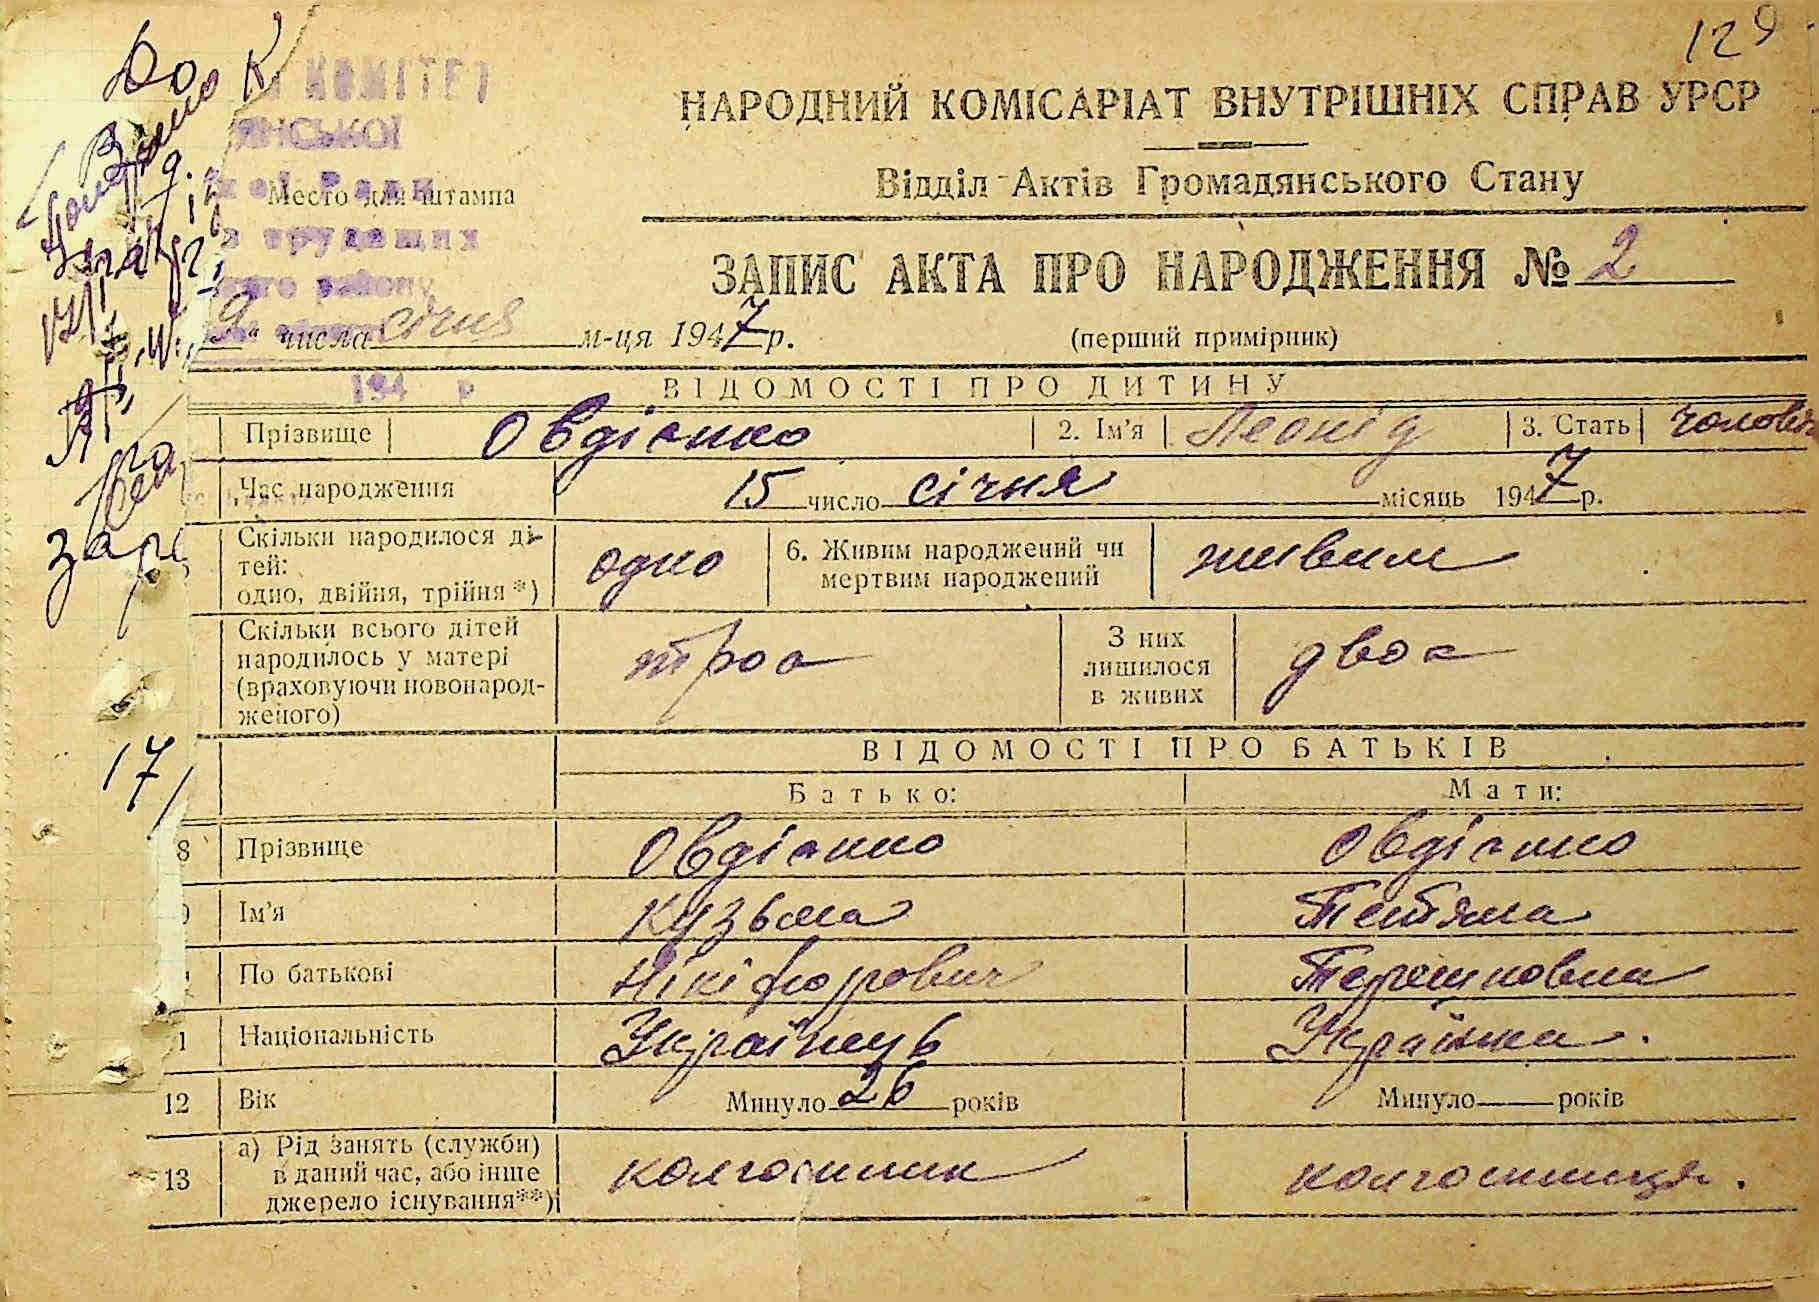 129
КОМІТЕТ
НСЬКОЇ
Ради
трудящих
району
Место для штампа
НАРОДНИЙ КОМІСАРІАТ ВНУТРІШНІХ СПРАВ УРСР
Відділ Актів Громадянського Стану
ЗАПИС АКТА ПРО НАРОДЖЕННЯ № 2
9 числа січня м-ця 1947 р.
(перший примірник)
194 р
ВІДОМОСТІ ПРО ДИТИНУ
Прізвище Овдієнко 2. Ім'я Леонід 3. Стать чоловіч
Час народження 15 число січня місяць 1947 р.
Скільки народилося ді-
тей:
одно, двійня, трійня *) одно 6. Живим народжений чи
мертвим народжений живим
Скільки всього дітей
народилось у матері
(враховуючи новонарод-
женого) троє З них
лишилося
в живих двоє
17
ВІДОМОСТІ ПРО БАТЬКІВ
Батько: Мати:
8 Прізвище Овдієнко Овдієнко
Ім'я Кузьма Тетяна
По батькові Нікіфорович Терешковна
1 Національність Українець Українка.
12 Вік Минуло 26 років Минуло років
13 а) Рід занять (служби)
в даний час, або інше
джерело існування**) колгоспник колгоспниця.